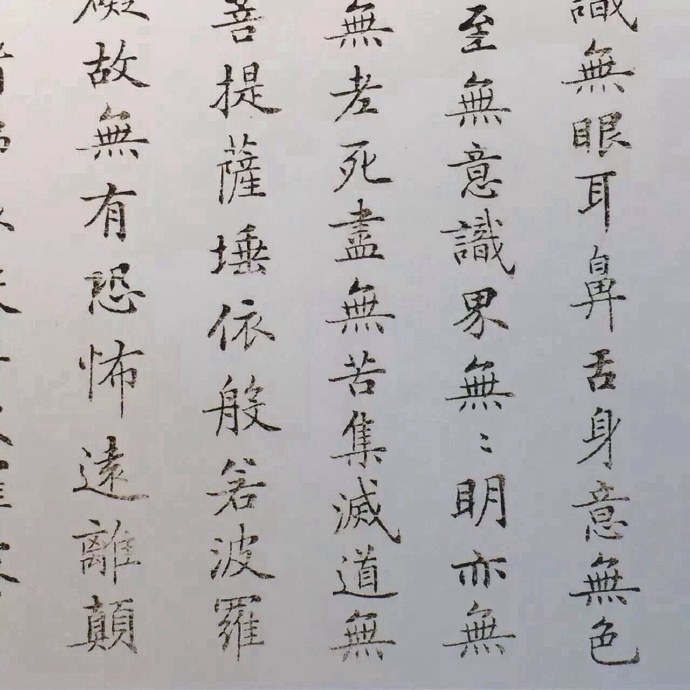 識無眼耳鼻舌身意無色
至無意識界無〻明亦無
無老死盡無苦集滅道無
菩提薩埵依般若波羅
礙故無有恐怖遠離顛